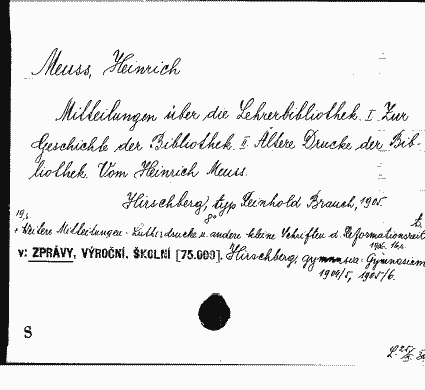 Meuss, Heinrich
Mitteilungen über die Lehrerbibliothek. I. Zur
Geschichte der Bibliothek. II. Ältere Drucke der Bib-
liothek. Vom Heinrich Meuss.
Hirschberg, typ Reinhold Brauch, 1905
8°
+ Weitere Mitteilungen. Lutherdrucke u. andere kleine Schriften d. Reformationszeit
v: ZPRÁVY, VÝROČNÍ, ŠKOLNÍ [75.000]. Hirschberg, Gymnasium
1904/5, 1905/6.
S